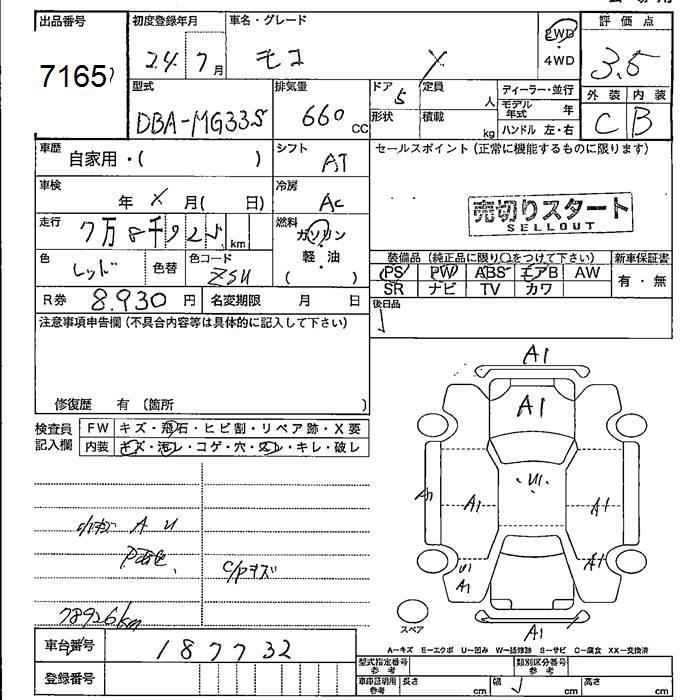 出品番号 初度登録年月 車名・グレード 2WD 評価点
7165 24 7月 モコ X ・ 3.5
4WD
型式 排気量 ドア 5 定員 人 ディーラー・並行 外装 内装
DBA-MG33S 660 cc 形状 積載 kg モデル年式 年 C B
ハンドル 左・右
車歴 自家用・( ) シフト AT セールスポイント(正常に機能するものに限ります)
車検 年 X 月( 日) 冷房 AC
売切りスタート
SELLOUT
走行 7万8千925 km 燃料 ガソリン
軽・油
( )
色 レッド 色替 色コード ZSU 装備品(純正品に限り○をつけて下さい) 新車保証書
PS PW ABS エアB AW 有・無
SR ナビ TV カワ
R券 8.930 円 名変期限 月 日 後日品
注意事項申告欄(不具合内容等は具体的に記入して下さい)
修復歴 有 〔箇所 〕
検査員記入欄 FW キズ・飛石・ヒビ割・リペア跡・X要
内装 キズ・汚レ・コゲ・穴・スレ・キレ・破レ
A1
A1
U1
A1 A1 A+
U1 A+
A1
A1
スペア
A U
C/Pキズ
78926km
A―キズ E―エクボ U―凹み W―補修跡 S―サビ C―腐食 XX―交換済
車台番号 187732
登録番号
型式指定番号 参考 類別区分番号 参考
車印証明用 参考 長さ cm 幅 cm 高さ cm